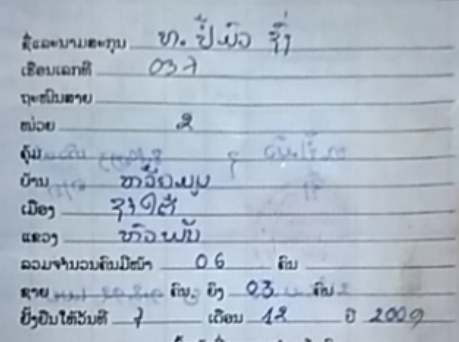 ຊື່ແລະນາມສະກຸນ ທ. ປໍ້ ຢົວ ຊົ່ງ
ເຮືອນເລກທີ 037
ຖະໜົນສາຍ
ໜ່ວຍ 2
ຄຸ້ມ
ບ້ານ ຫ້ວຍ
ເມືອງ
ແຂວງ ຫົວພັນ
ລວມຈຳນວນຄົນມີໜ້າ 06 ຄົນ
ຊາຍ ຄົນ, ຍິງ 03 ຄົນ
ຢັ້ງຢືນໃຫ້ວັນທີ 7 ເດືອນ 12 ປີ 2009